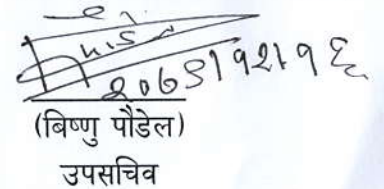 २०७९।१२।१६
(बिष्णु पौडेल)
उपसचिव